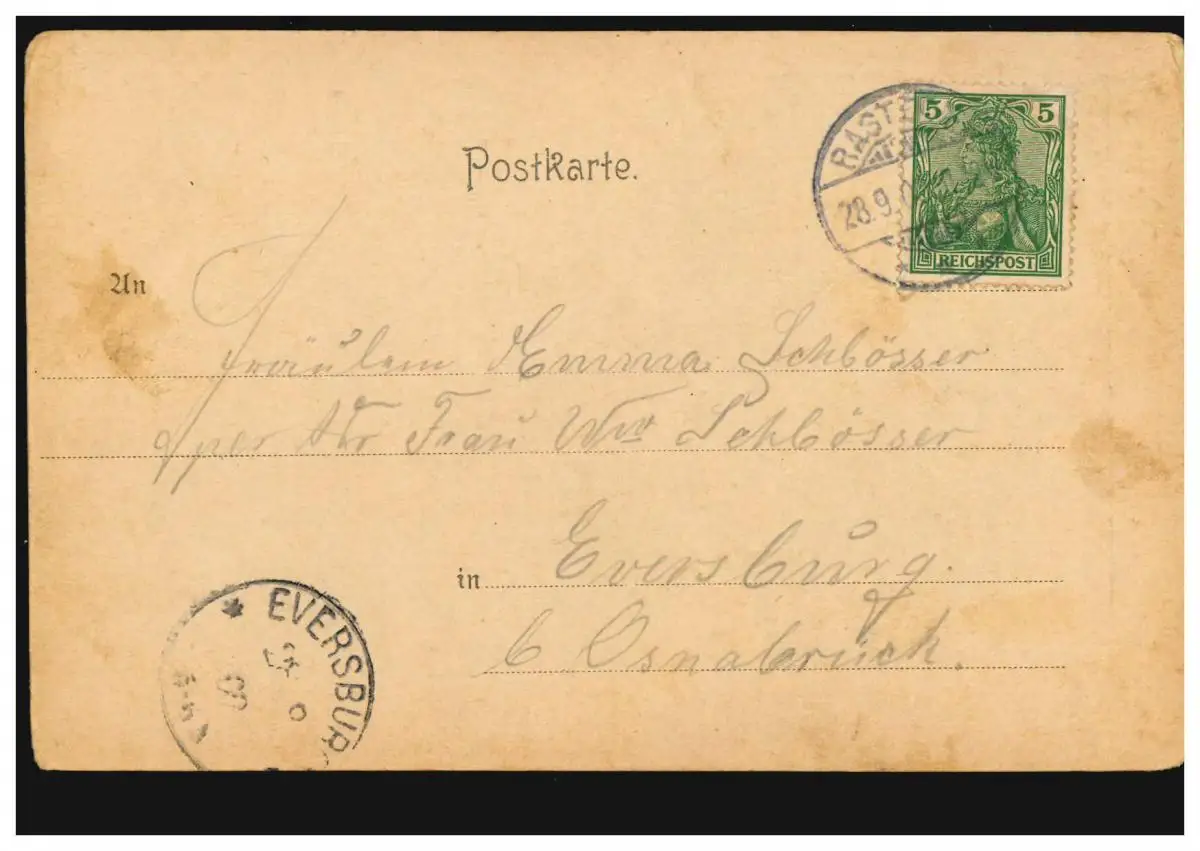 Postkarte.
5 5
REICHSPOST
RASTE
28.9.
An
Fräulein Emma Schlösser
per Adr Frau Ww Schlösser
in Eversburg.
b Osnabrück.
* EVERSBUR